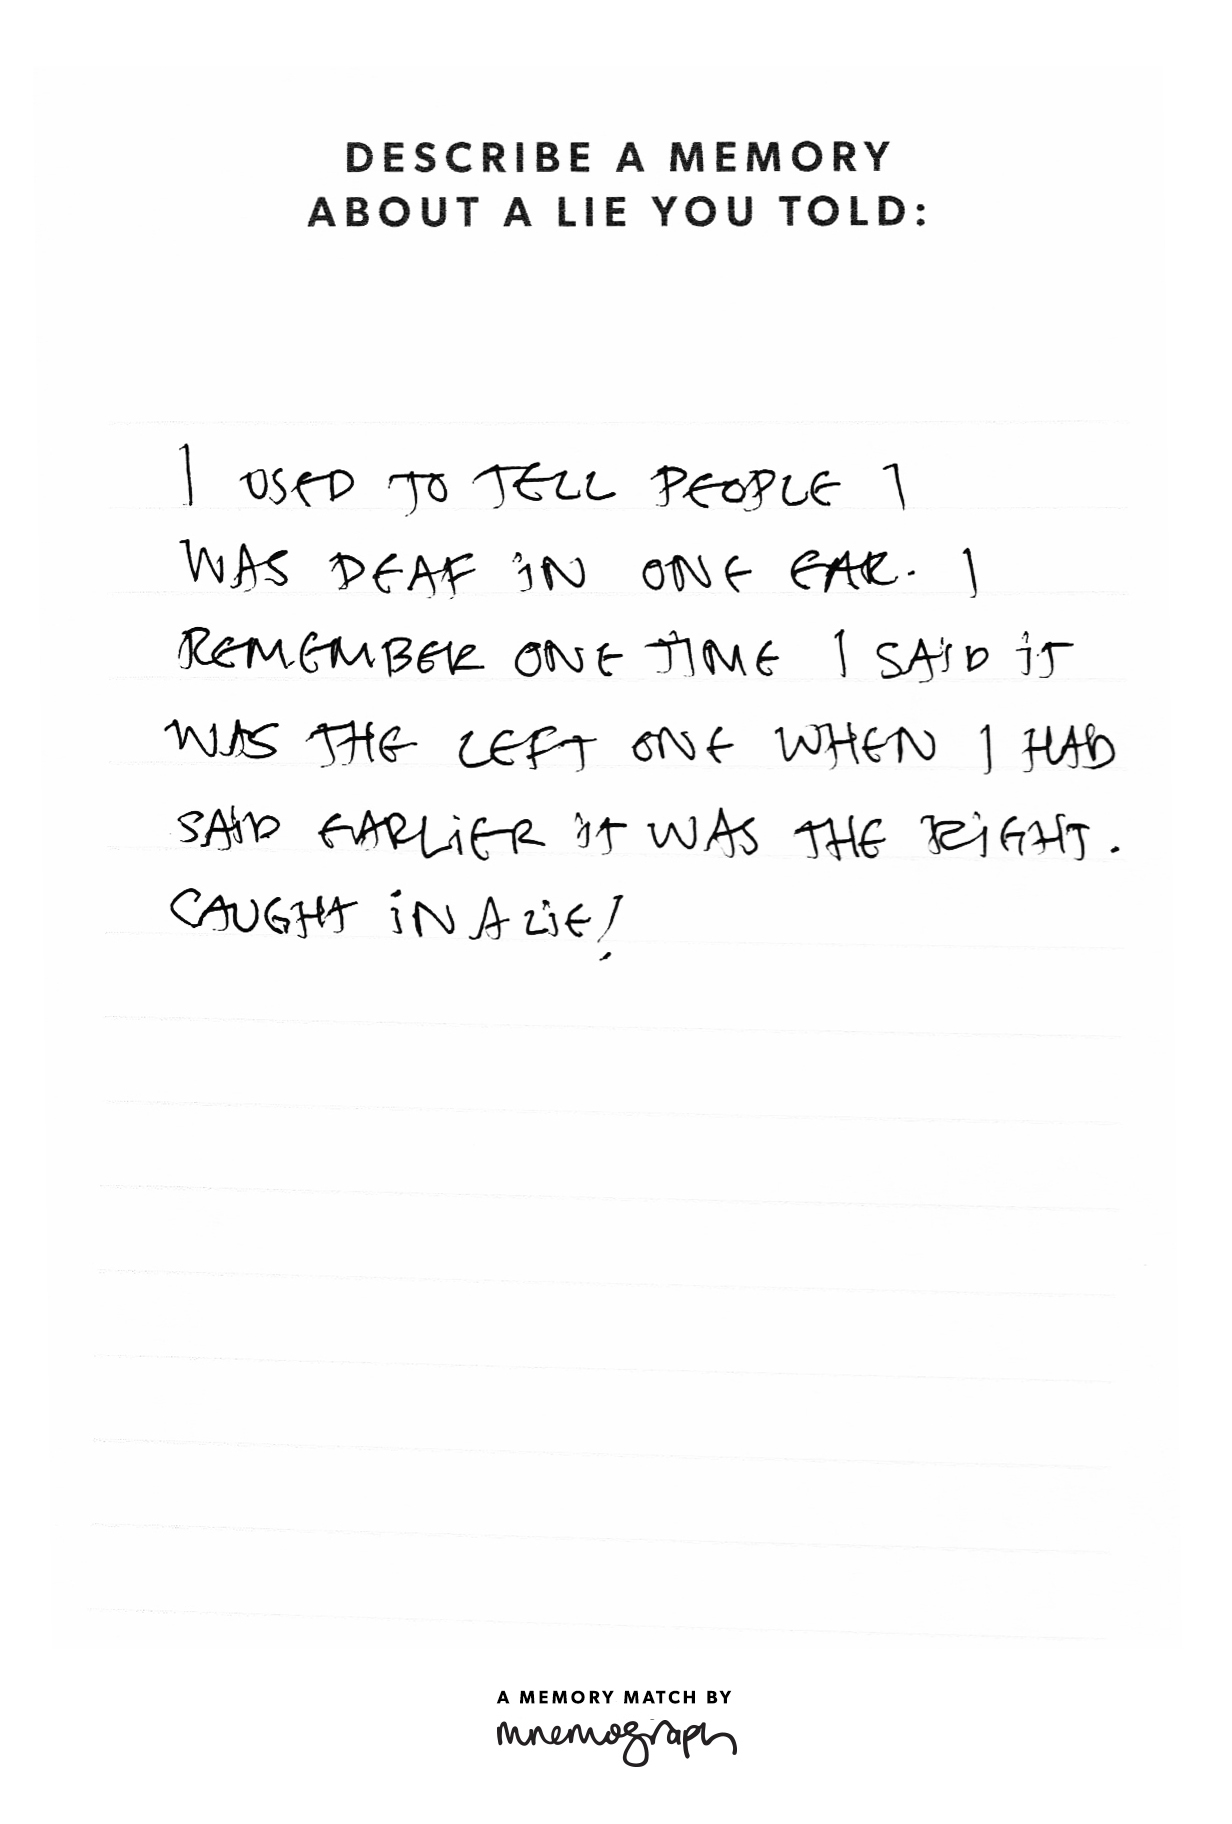 DESCRIBE A MEMORY
ABOUT A LIE YOU TOLD:
I USED TO TELL PEOPLE I
WAS DEAF iN ONE EAR. I
REMEMBER ONE TiME I SAiD iT
WAS THE LEFT ONE WHEN I HAD
SAiD EARLiER iT WAS THE RiGHT.
CAUGHT iN A LiE!
A MEMORY MATCH BY
mnemograph